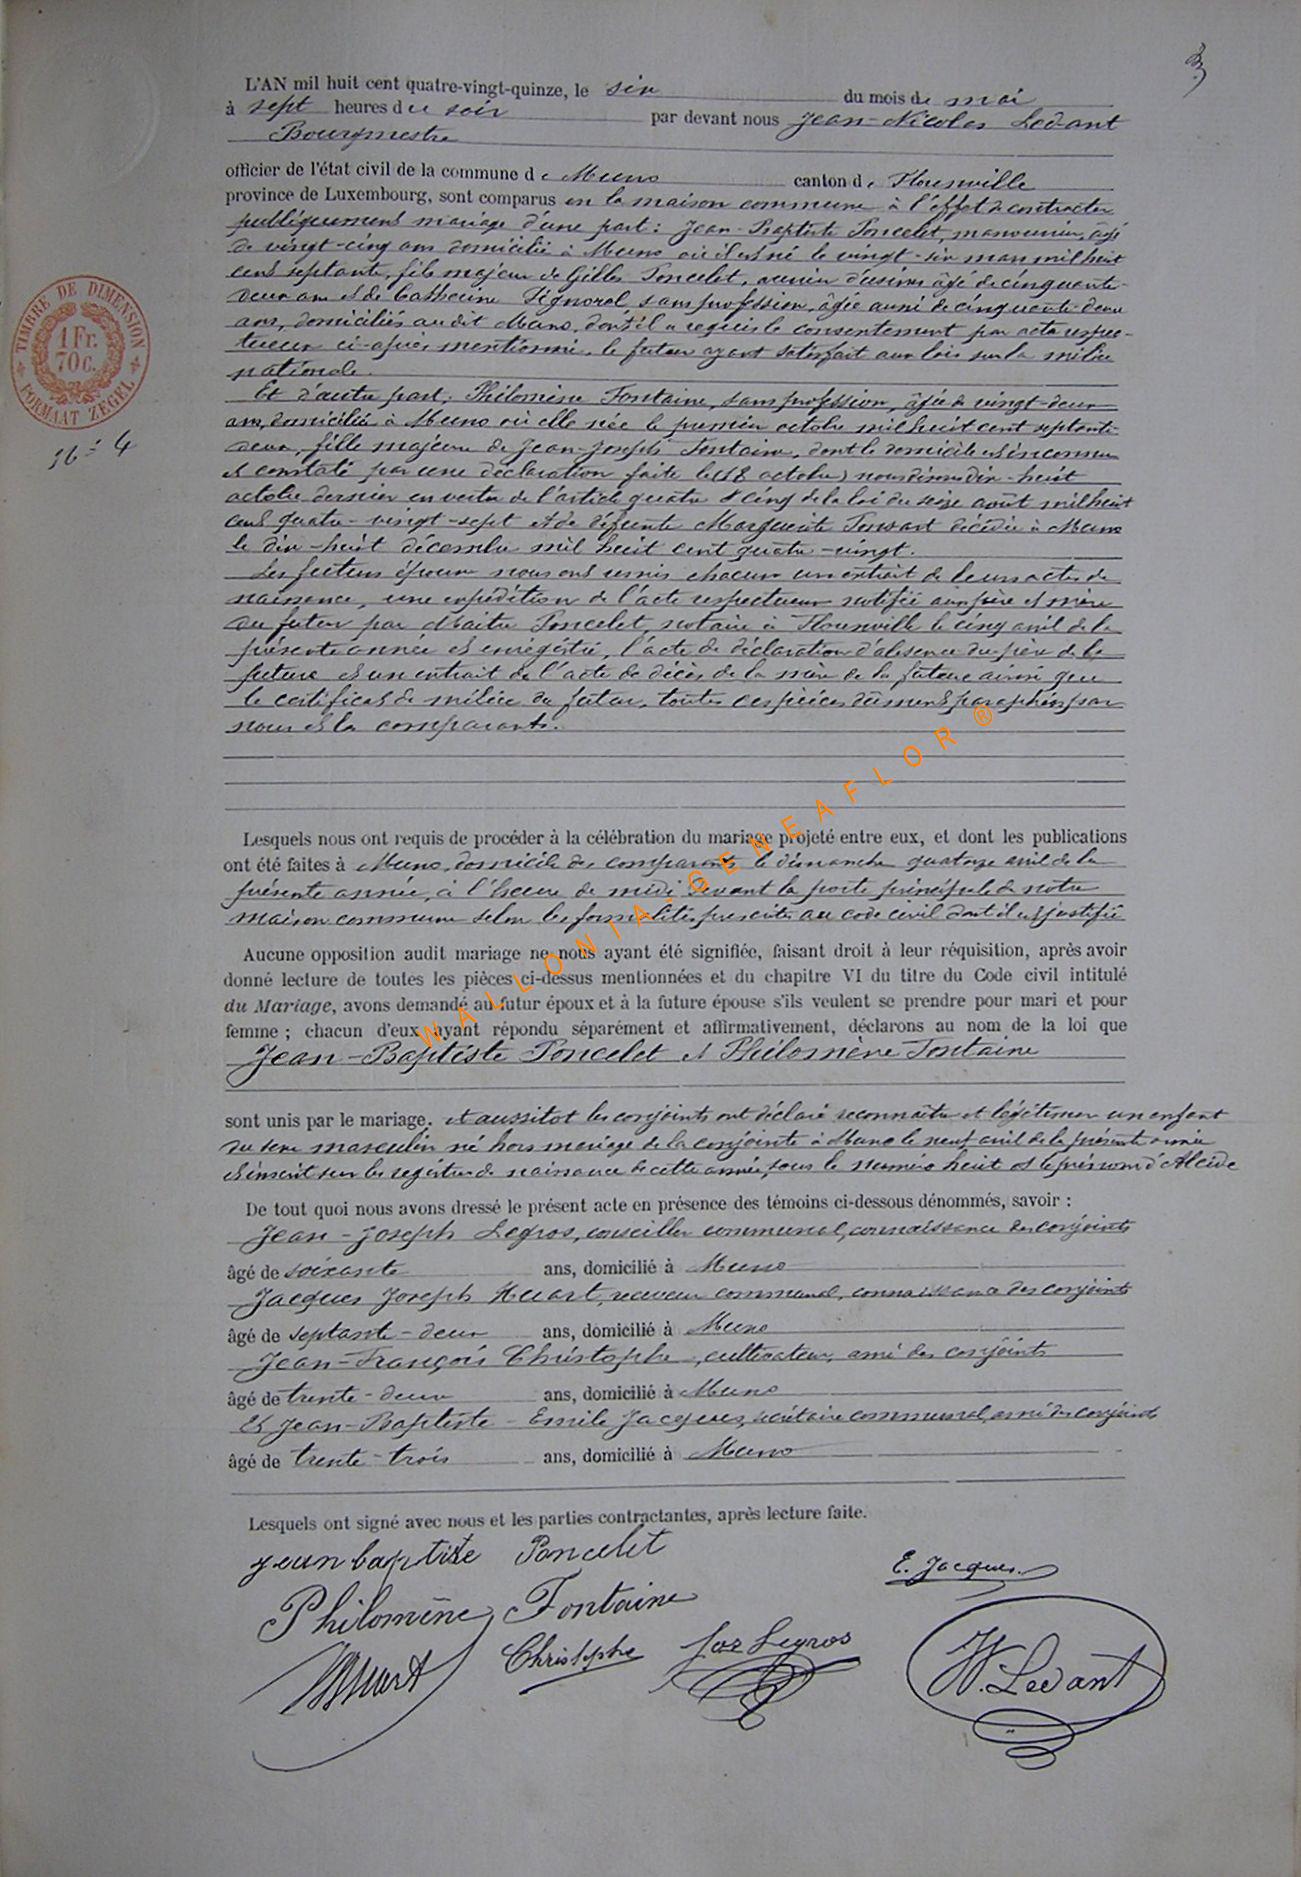 L'AN mil huit cent quatre-vingt-quinze, le six du mois de mai
à sept heures du soir par devant nous Jean-Nicolas Ledant
Bourgmestre
officier de l'état civil de la commune de Muno canton de Florenville
province de Luxembourg, sont comparus en la maison commune à l'effet de contracter
publiquement mariage d'une part: Jean-Baptiste Poncelet, manouvrier, âgé
de vingt-cinq ans domicilié à Muno où il est né le vingt-six mars mil huit
cent septante, fils majeur de Gilles Poncelet, ouvrier d'usines âgé de cinquante-
deux ans et de Catherine Pignorel, sans profession, âgée aussi de cinquante-deux
ans, domiciliés audit Muno, dont il a requis le consentement par acte respec-
tueux ci-après mentionné, le futur ayant satisfait aux lois sur la milice
nationale.
Et d'autre part: Philomène Fontaine, sans profession, âgée de vingt-deux
ans, domiciliée à Muno où elle née le premier octobre mil huit cent septante-
deux, fille majeure de Jean-Joseph Fontaine, dont le domicile est inconnu
et constaté par une déclaration faite le (18 octobre) nous disons dix-huit
octobre dernier en vertu de l'article quatre & cinq de la loi du seize août mil huit
cent quatre-vingt-sept et de défunte Marguerite décédée à Muno
le dix-huit décembre mil huit cent quatre-vingt.
Les futurs époux nous ont remis chacun un extrait de leurs actes de
naissance, une expédition de l'acte respectueux notifié aux père et mère
du futur par Maître Poncelet, notaire à Florenville le cinq avril de la
présente année et enrégistré, l'acte de déclaration d'absence du père de la
future et un extrait de l'acte de décès de la mère de la future ainsi que
le certificat de milice du futur, toutes ces pièces dûment paraphées par
nous et les comparants.
Lesquels nous ont requis de procéder à la célébration du mariage projeté entre eux, et dont les publications
ont été faites à Muno, domicile des comparants le dimanche quatorze avril de la
présente année, à l'heure de midi devant la porte principale de notre
maison commune selon les formalités prescrites au code civil dont il est justifié
Aucune opposition audit mariage ne nous ayant été signifiée, faisant droit à leur réquisition, après avoir
donné lecture de toutes les pièces ci-dessus mentionnées et du chapitre VI du titre du Code civil intitulé
du Mariage, avons demandé au futur époux et à la future épouse s'ils veulent se prendre pour mari et pour
femme ; chacun d'eux ayant répondu séparément et affirmativement, déclarons au nom de la loi que
Jean-Baptiste Poncelet et Philomène Fontaine
sont unis par le mariage. et aussitot les conjoints ont déclaré reconnaître et légitimer un enfant
du sexe masculin né hors mariage de la conjointe à Muno le neuf avril de la présente année
et inscrit sur les registres de naissance de cette année, sous le numéro huit et le prénom d'Alcide
De tout quoi nous avons dressé le présent acte en présence des témoins ci-dessous dénommés, savoir :
Jean-Joseph Legros, conseiller communal, connaissance des conjoints
âgé de soixante ans, domicilié à Muno
Jacques Joseph Huart, receveur communal, connaissance des conjoints
âgé de septante-deux ans, domicilié à Muno
Jean-François Christophe, cultivateur, ami des conjoints
âgé de trente-deux ans, domicilié à Muno
Et Jean-Baptiste-Emile Jacques, secrétaire communal, ami des conjoints
âgé de trente-trois ans, domicilié à Muno
Lesquels ont signé avec nous et les parties contractantes, après lecture faite.
jean baptiste Poncelet
E. Jacques.
Philomène Fontaine
Huart Christophe Jos Legros N. Ledant
TIMBRE DE DIMENSION
1 Fr.
70 C.
FORMAAT ZEGEL
WALLONIA-GENEAFLOR ®